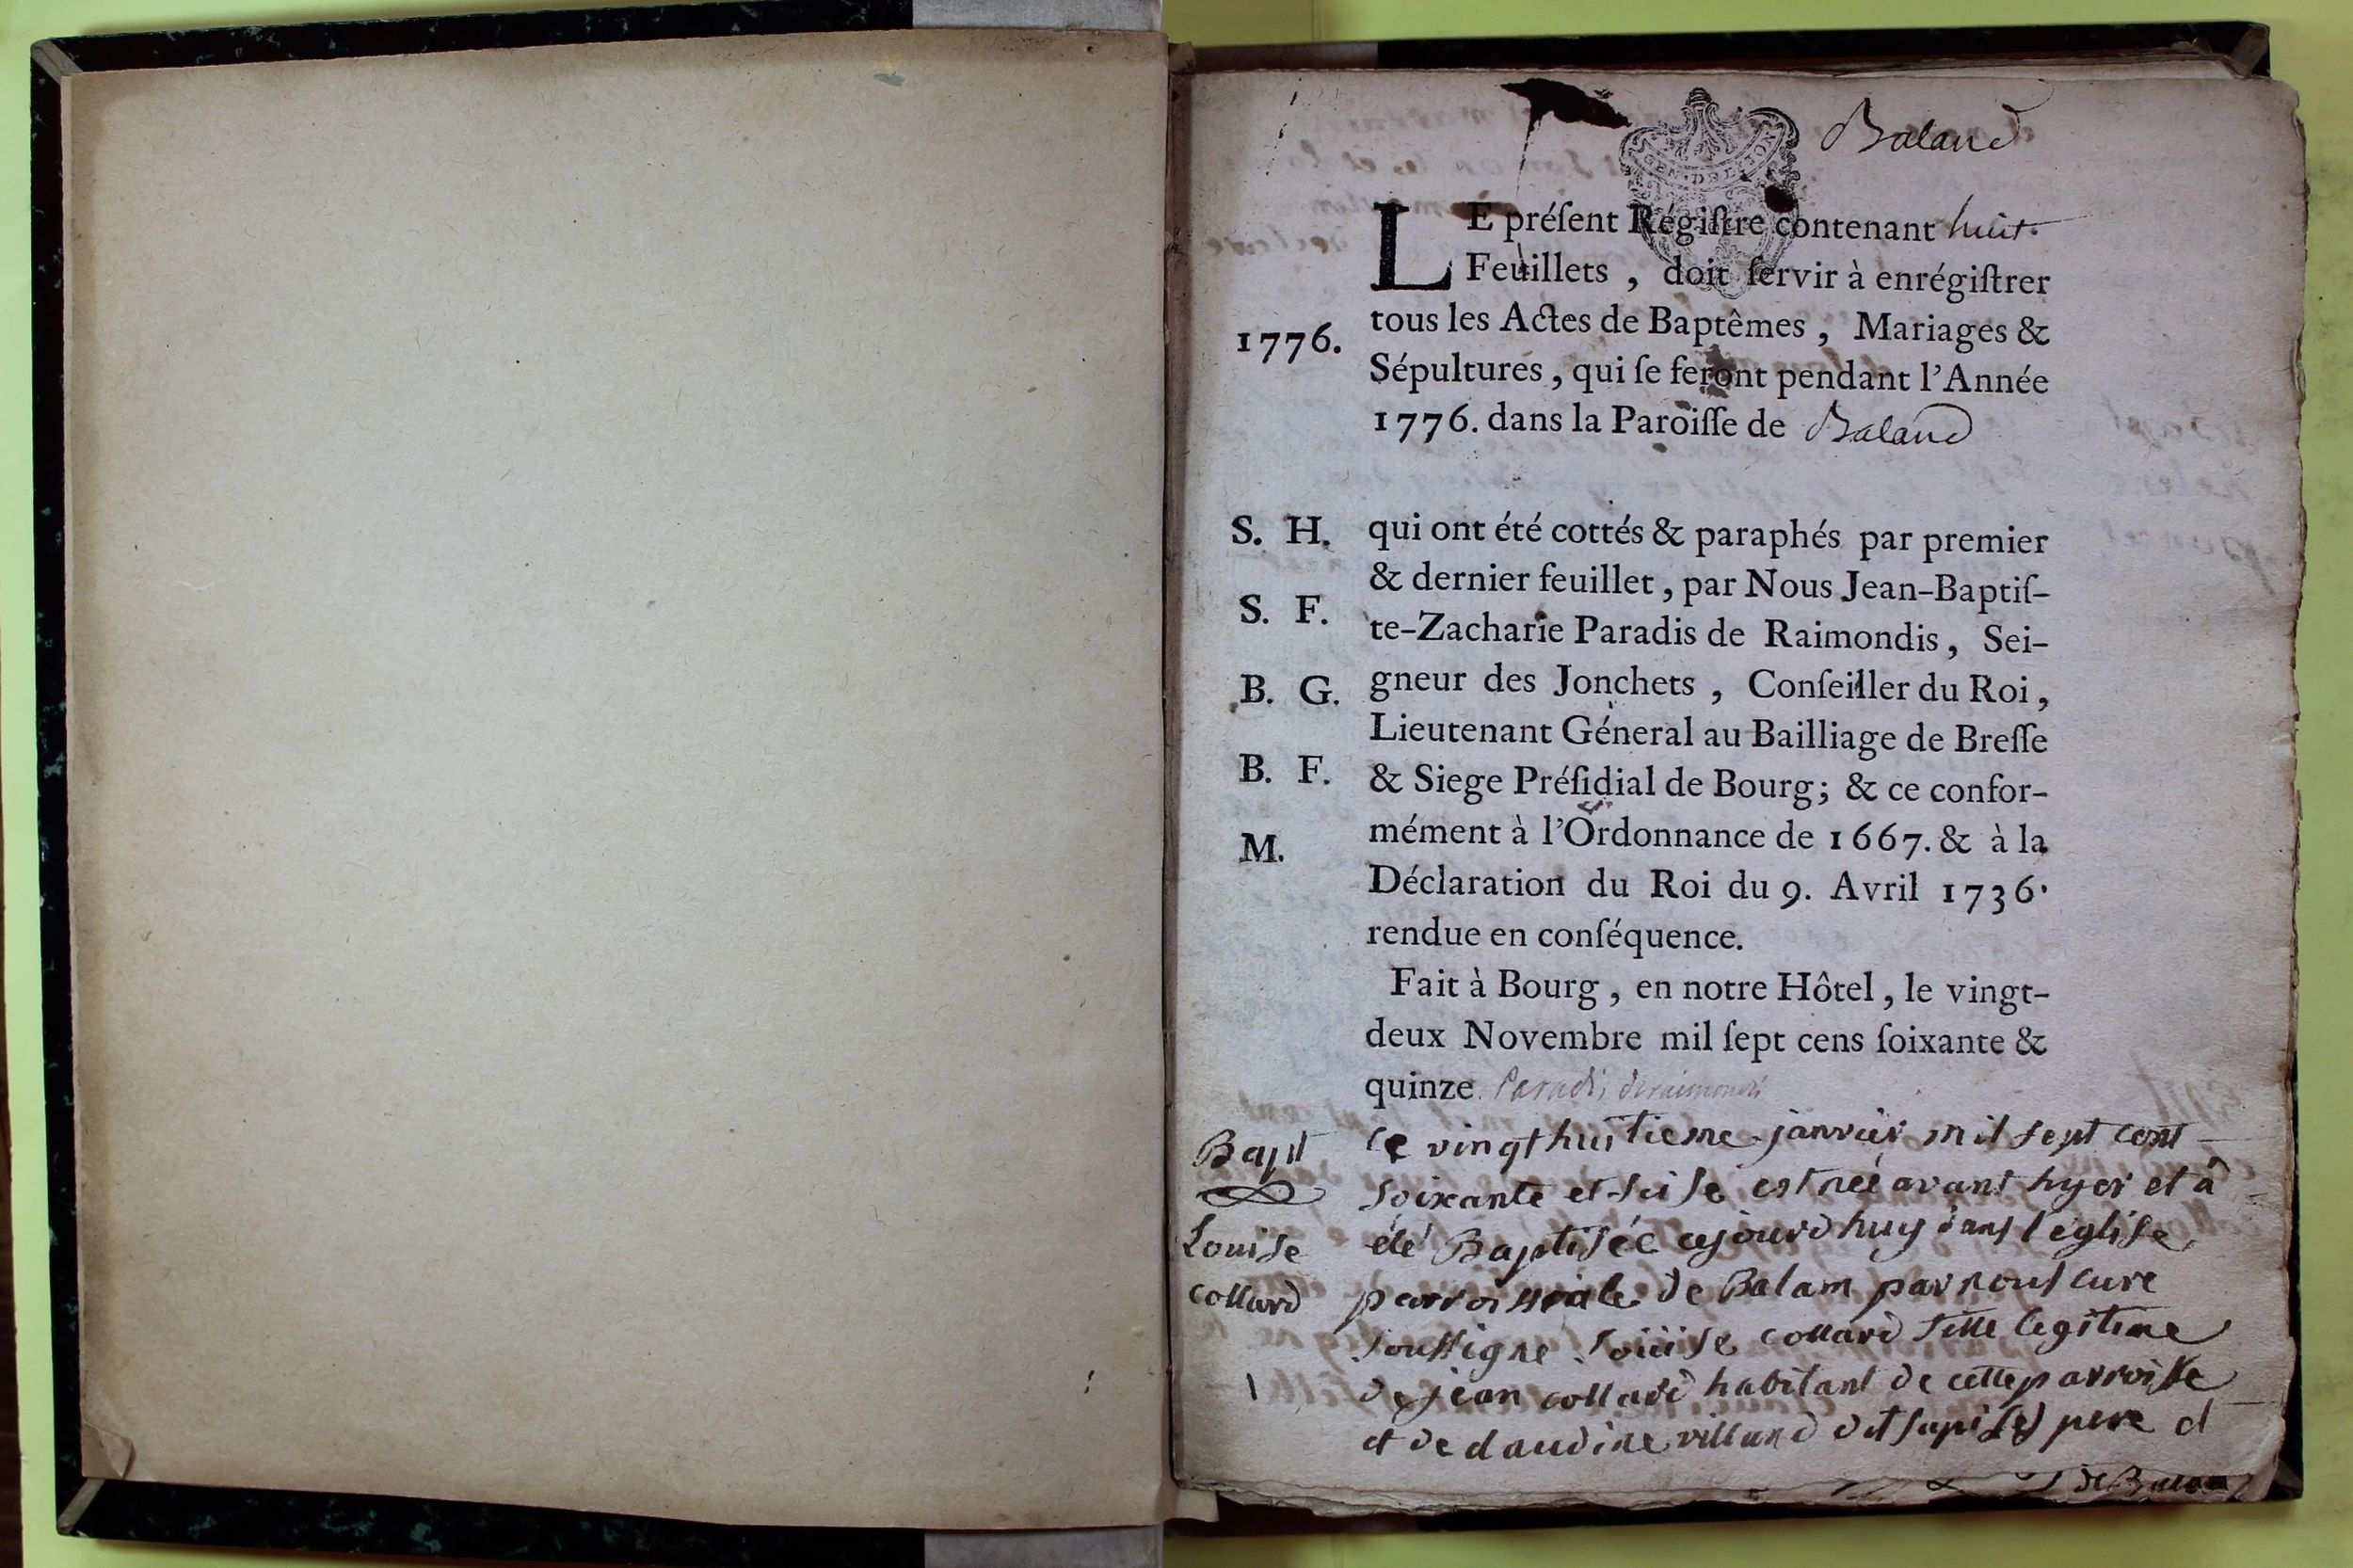 Baland
GEN. DE LYON
LE préſent Régiſtre contenant huit
Feuillets , doit ſervir à enrégiſtrer
tous les Actes de Baptêmes , Mariages &
1776.
Sépultures , qui ſe feront pendant l’Année
1776. dans la Paroiſſe de Baland
S. H.
qui ont été cottés & paraphés par premier
& dernier feuillet , par Nous Jean-Baptiſ-
S. F.
te-Zacharie Paradis de Raimondis , Sei-
B. G.
gneur des Jonchets , Conſeiller du Roi ,
Lieutenant Géneral au Bailliage de Breſſe
B. F.
& Siege Préſidial de Bourg ; & ce confor-
mément à l’Ordonnance de 1667. & à la
M.
Déclaration du Roi du 9. Avril 1736.
rendue en conſéquence.
Fait à Bourg , en notre Hôtel , le vingt-
deux Novembre mil ſept cens ſoixante &
quinze. Paradis deraimondis
Bapt
Louise
collard
Le vingthuitieme janvier mil sept cent
soixante et seise est neé avant hyer et à
été Baptisée cejourdhuy dans l'eglise
parroissiale de Balam par nous cure
soussigne Loüise collard fille legitime
de jean collard habitant de cette parroisse
et de claudine villand dit pere et
de Balan